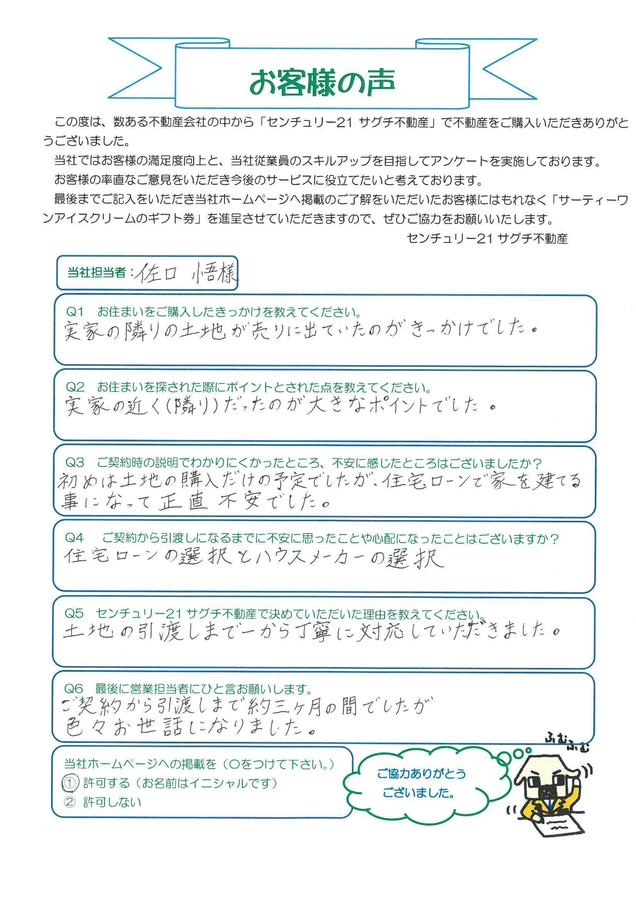 お客様の声
この度は、数ある不動産会社の中から「センチュリー21 サグチ不動産」で不動産をご購入いただきありがと
うございました。
当社ではお客様の満足度向上と、当社従業員のスキルアップを目指してアンケートを実施しております。
お客様の率直なご意見をいただき今後のサービスに役立てたいと考えております。
最後までご記入をいただき当社ホームページへ掲載のご了解をいただいたお客様にはもれなく「サーティーワ
ンアイスクリームのギフト券」を進呈させていただきますので、ぜひご協力をお願いいたします。
センチュリー21 サグチ不動産
当社担当者：佐口 悟様
Q1 お住まいをご購入したきっかけを教えてください。
実家の隣りの土地が売りに出ていたのがきっかけでした。
Q2 お住まいを探された際にポイントとされた点を教えてください。
実家の近く(隣り)だったのが大きなポイントでした。
Q3 ご契約時の説明でわかりにくかったところ、不安に感じたところはございましたか？
初めは土地の購入だけの予定でしたが、住宅ローンで家を建てる
事になって正直不安でした。
Q4 ご契約から引渡しになるまでに不安に思ったことや心配になったことはございますか？
住宅ローンの選択とハウスメーカーの選択
Q5 センチュリー21サグチ不動産で決めていただいた理由を教えてください。
土地の引渡しまで一から丁寧に対応していただきました。
Q6 最後に営業担当者にひと言お願いします。
ご契約から引渡しまで約三ヶ月の間でしたが
色々お世話になりました。
当社ホームページへの掲載を（○をつけて下さい。）
① 許可する（お名前はイニシャルです）
② 許可しない
ご協力ありがとう
ございました。
ふむふむ